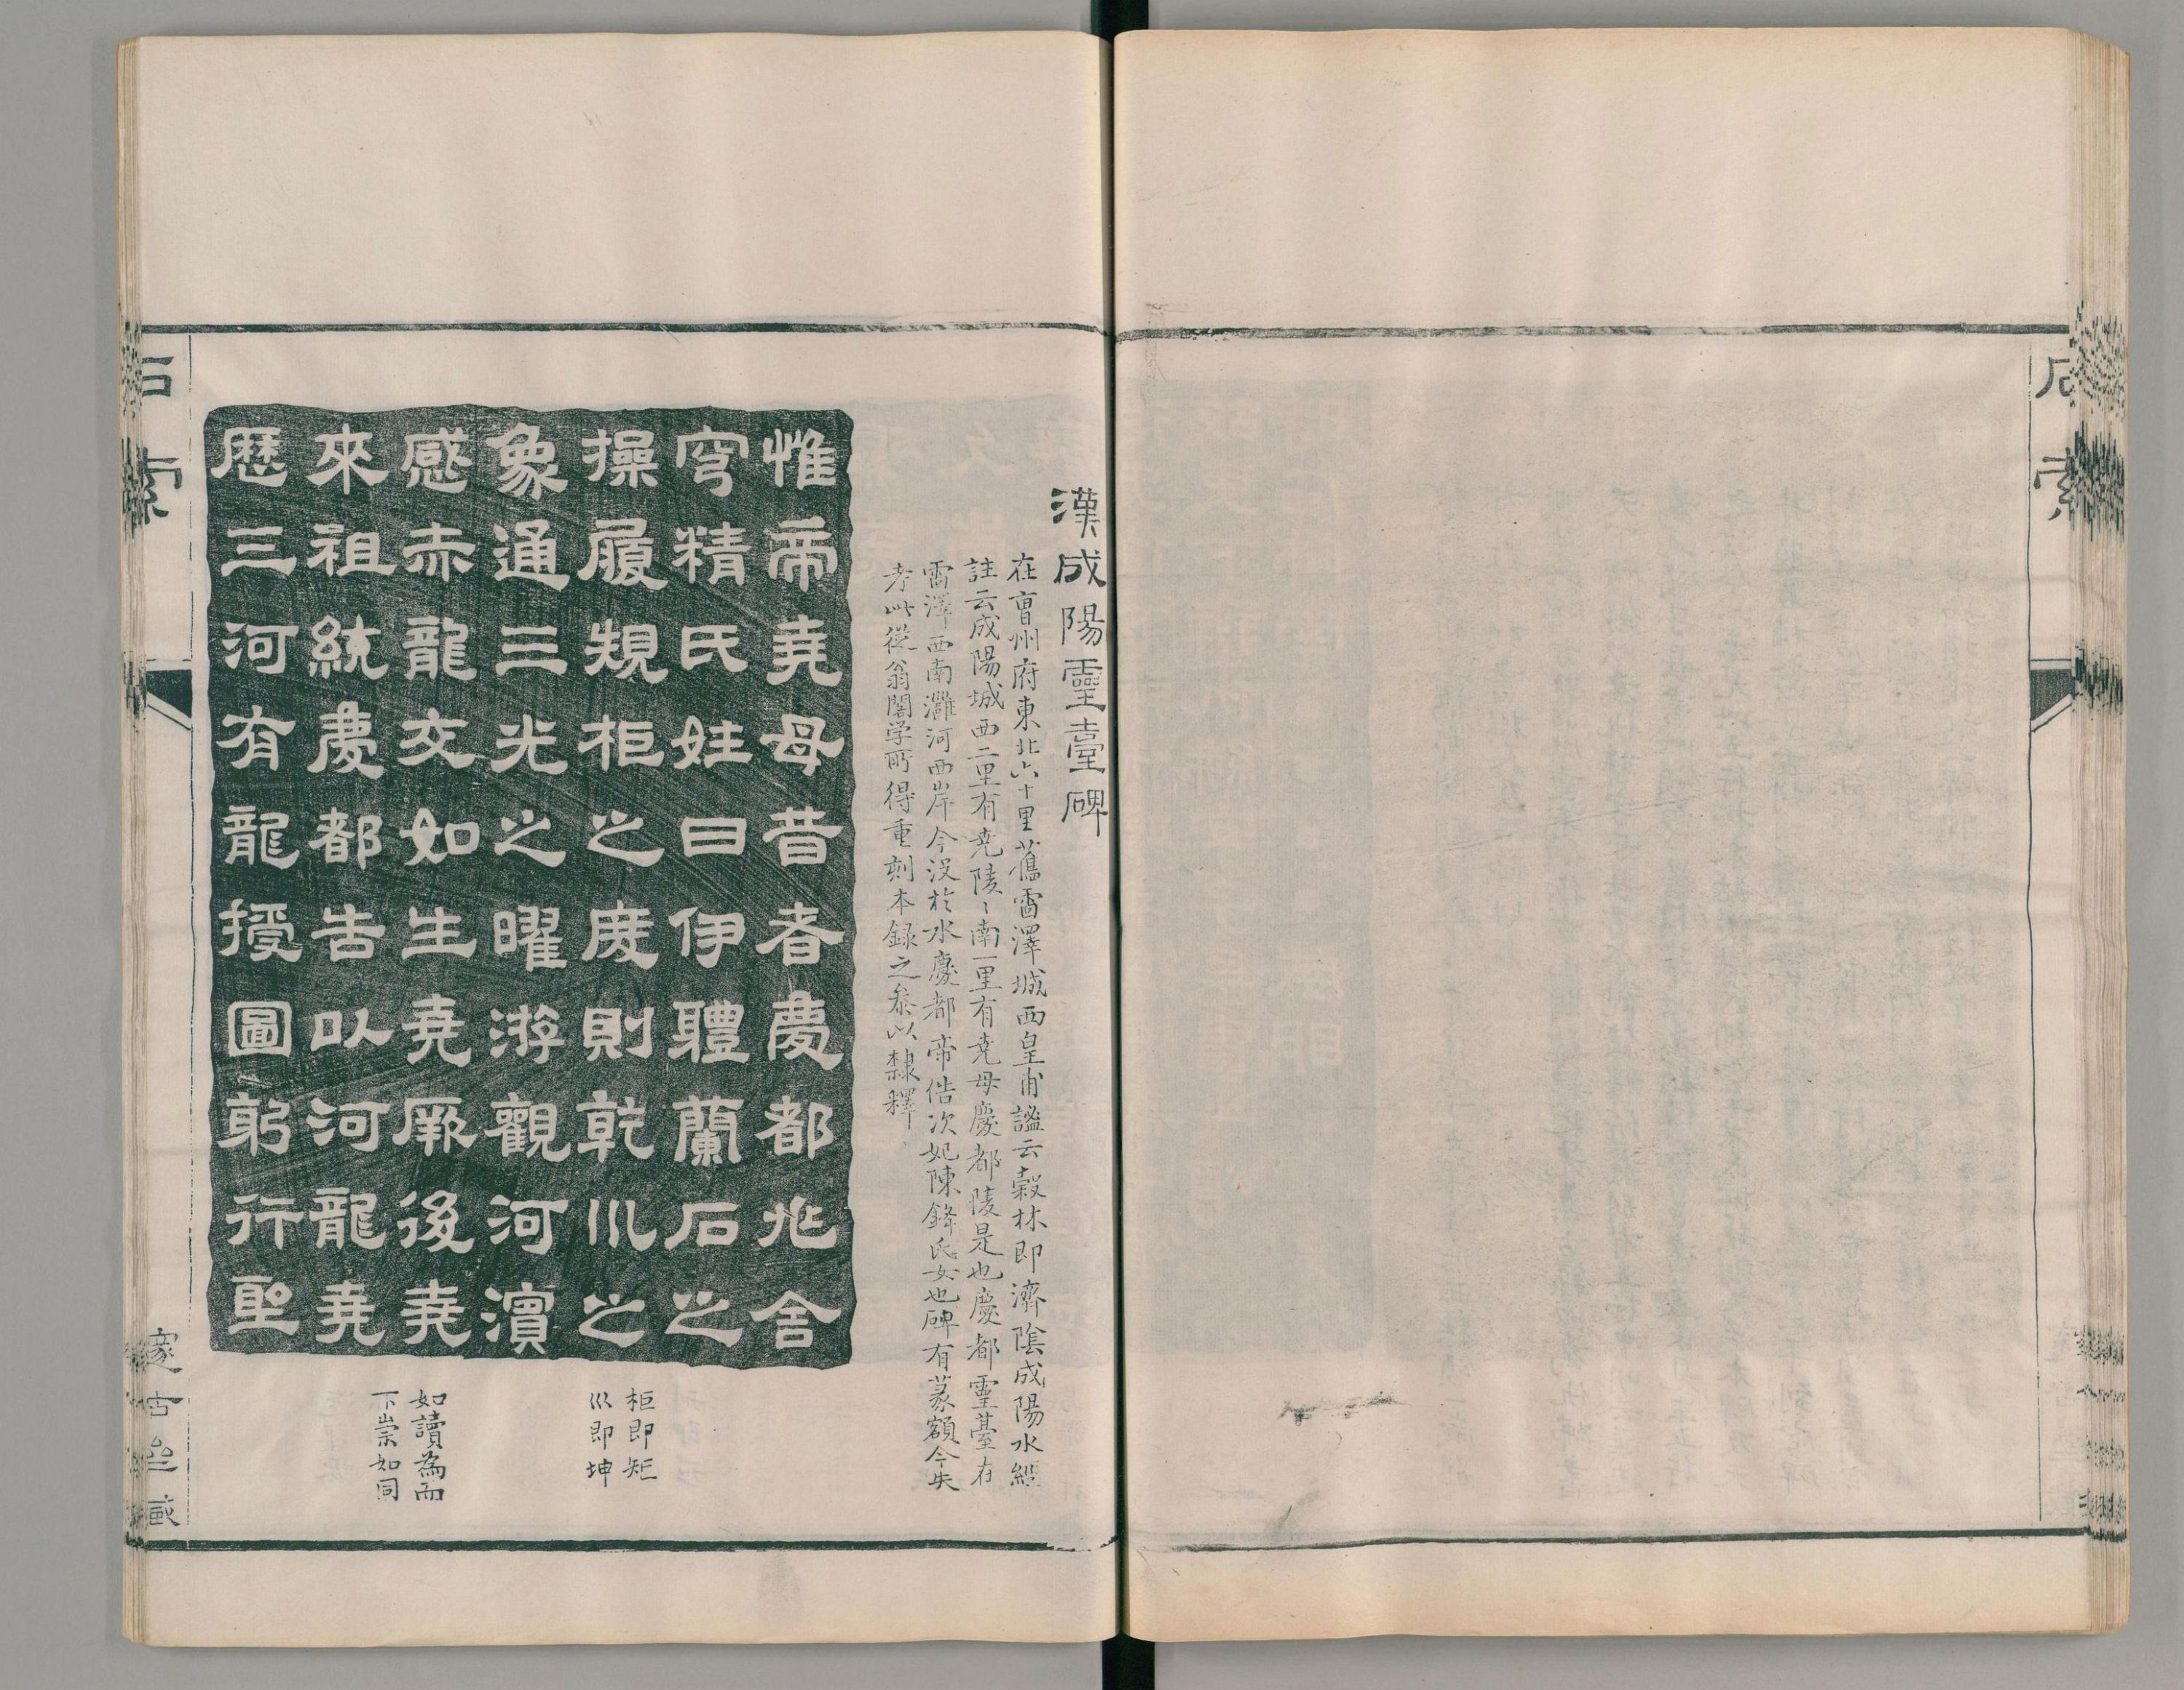 漢成陽靈臺碑
在曺州府東北六十里舊雷澤城西皇甫謐云穀林即濟陰成陽水經
註云成陽城西二里有尭陵〻南一里有尭母慶都陵是也慶都靈䑓在
雷澤西南灉河西岸今没於水慶都帝俈次妃陳鋒氏女也碑有篆額今失
考此從翁閣学所得重刻本録之叅以隸釋
惟帝堯母昔者慶都兆舍
穹精氏姓曰伊體蘭石之
操履規柜之度則乾巛之
象通三光之曜游觀河濱
感赤龍交如生堯厥後堯
來祖統慶都告以河龍堯
歷三河有龍授圖躬行聖
柜即矩
巛即坤
如讀為而
下崇如同
石索
邃古齋藏
石索